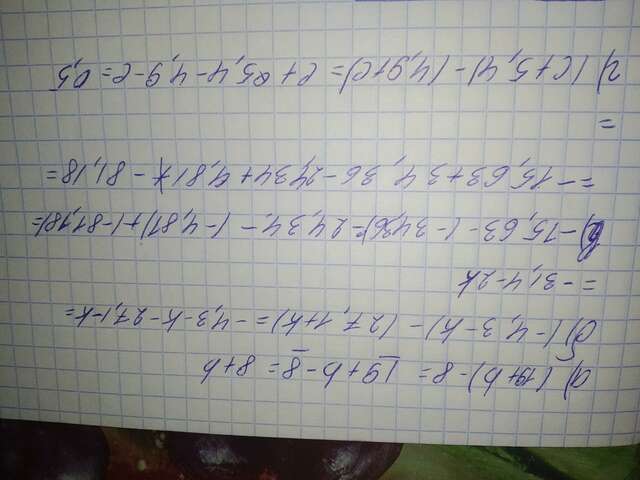 а) (19+b)-8= 19+b-8= 8+b
б) (-4,3-k)-(27,1+k)=-4,3-k-27,1-k=
=-31,4-2k
в) -15,63-(-34,36)-24,34-(-4,81)+(-81,18)=
=-15,63+34,36-24,34+4,81-81,18=
=
г) (c+5,4)-(4,9+c)= c+5,4-4,9-c=0,5